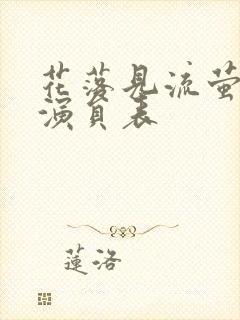 花落見流萤
演員表
蓮洛